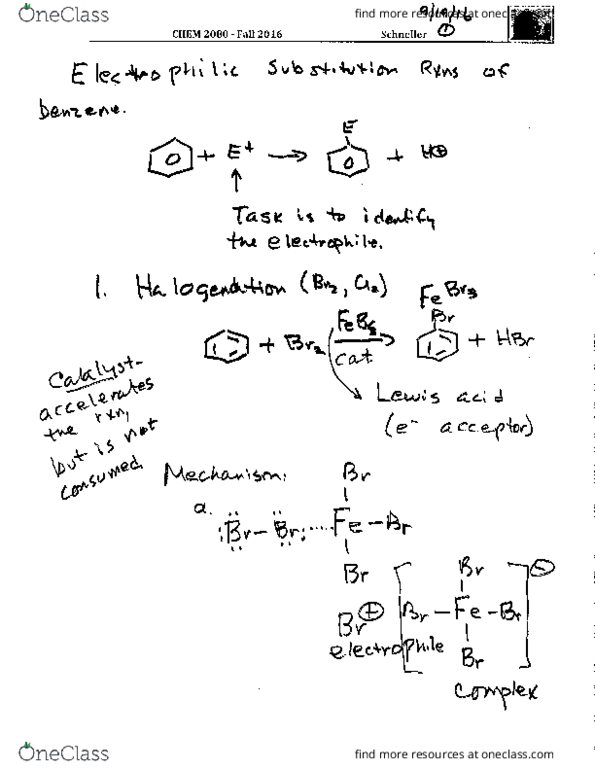 OneClass
find more resources at oneclass.com
CHEM 2000 - Fall 2016 Schneller ①
Electrophilic Substitution Rxns of
benzene.
E
+ E+ → + H⊕
↑
Task is to identify
the electrophile.
1. Halogenation (Br2, Cl2)
FeBr3
Br
+ Br2 FeBr3 + HBr
cat
Catalyst-
accelerates
the rxn,
but is not
consumed
Lewis acid
(e- acceptor)
Mechanism:
a.
Br
:Br-Br:.....Fe-Br
Br
Br⊕
electrophile
[ Br ]⊖
Br-Fe-Br
Br
complex
OneClass
find more resources at oneclass.com